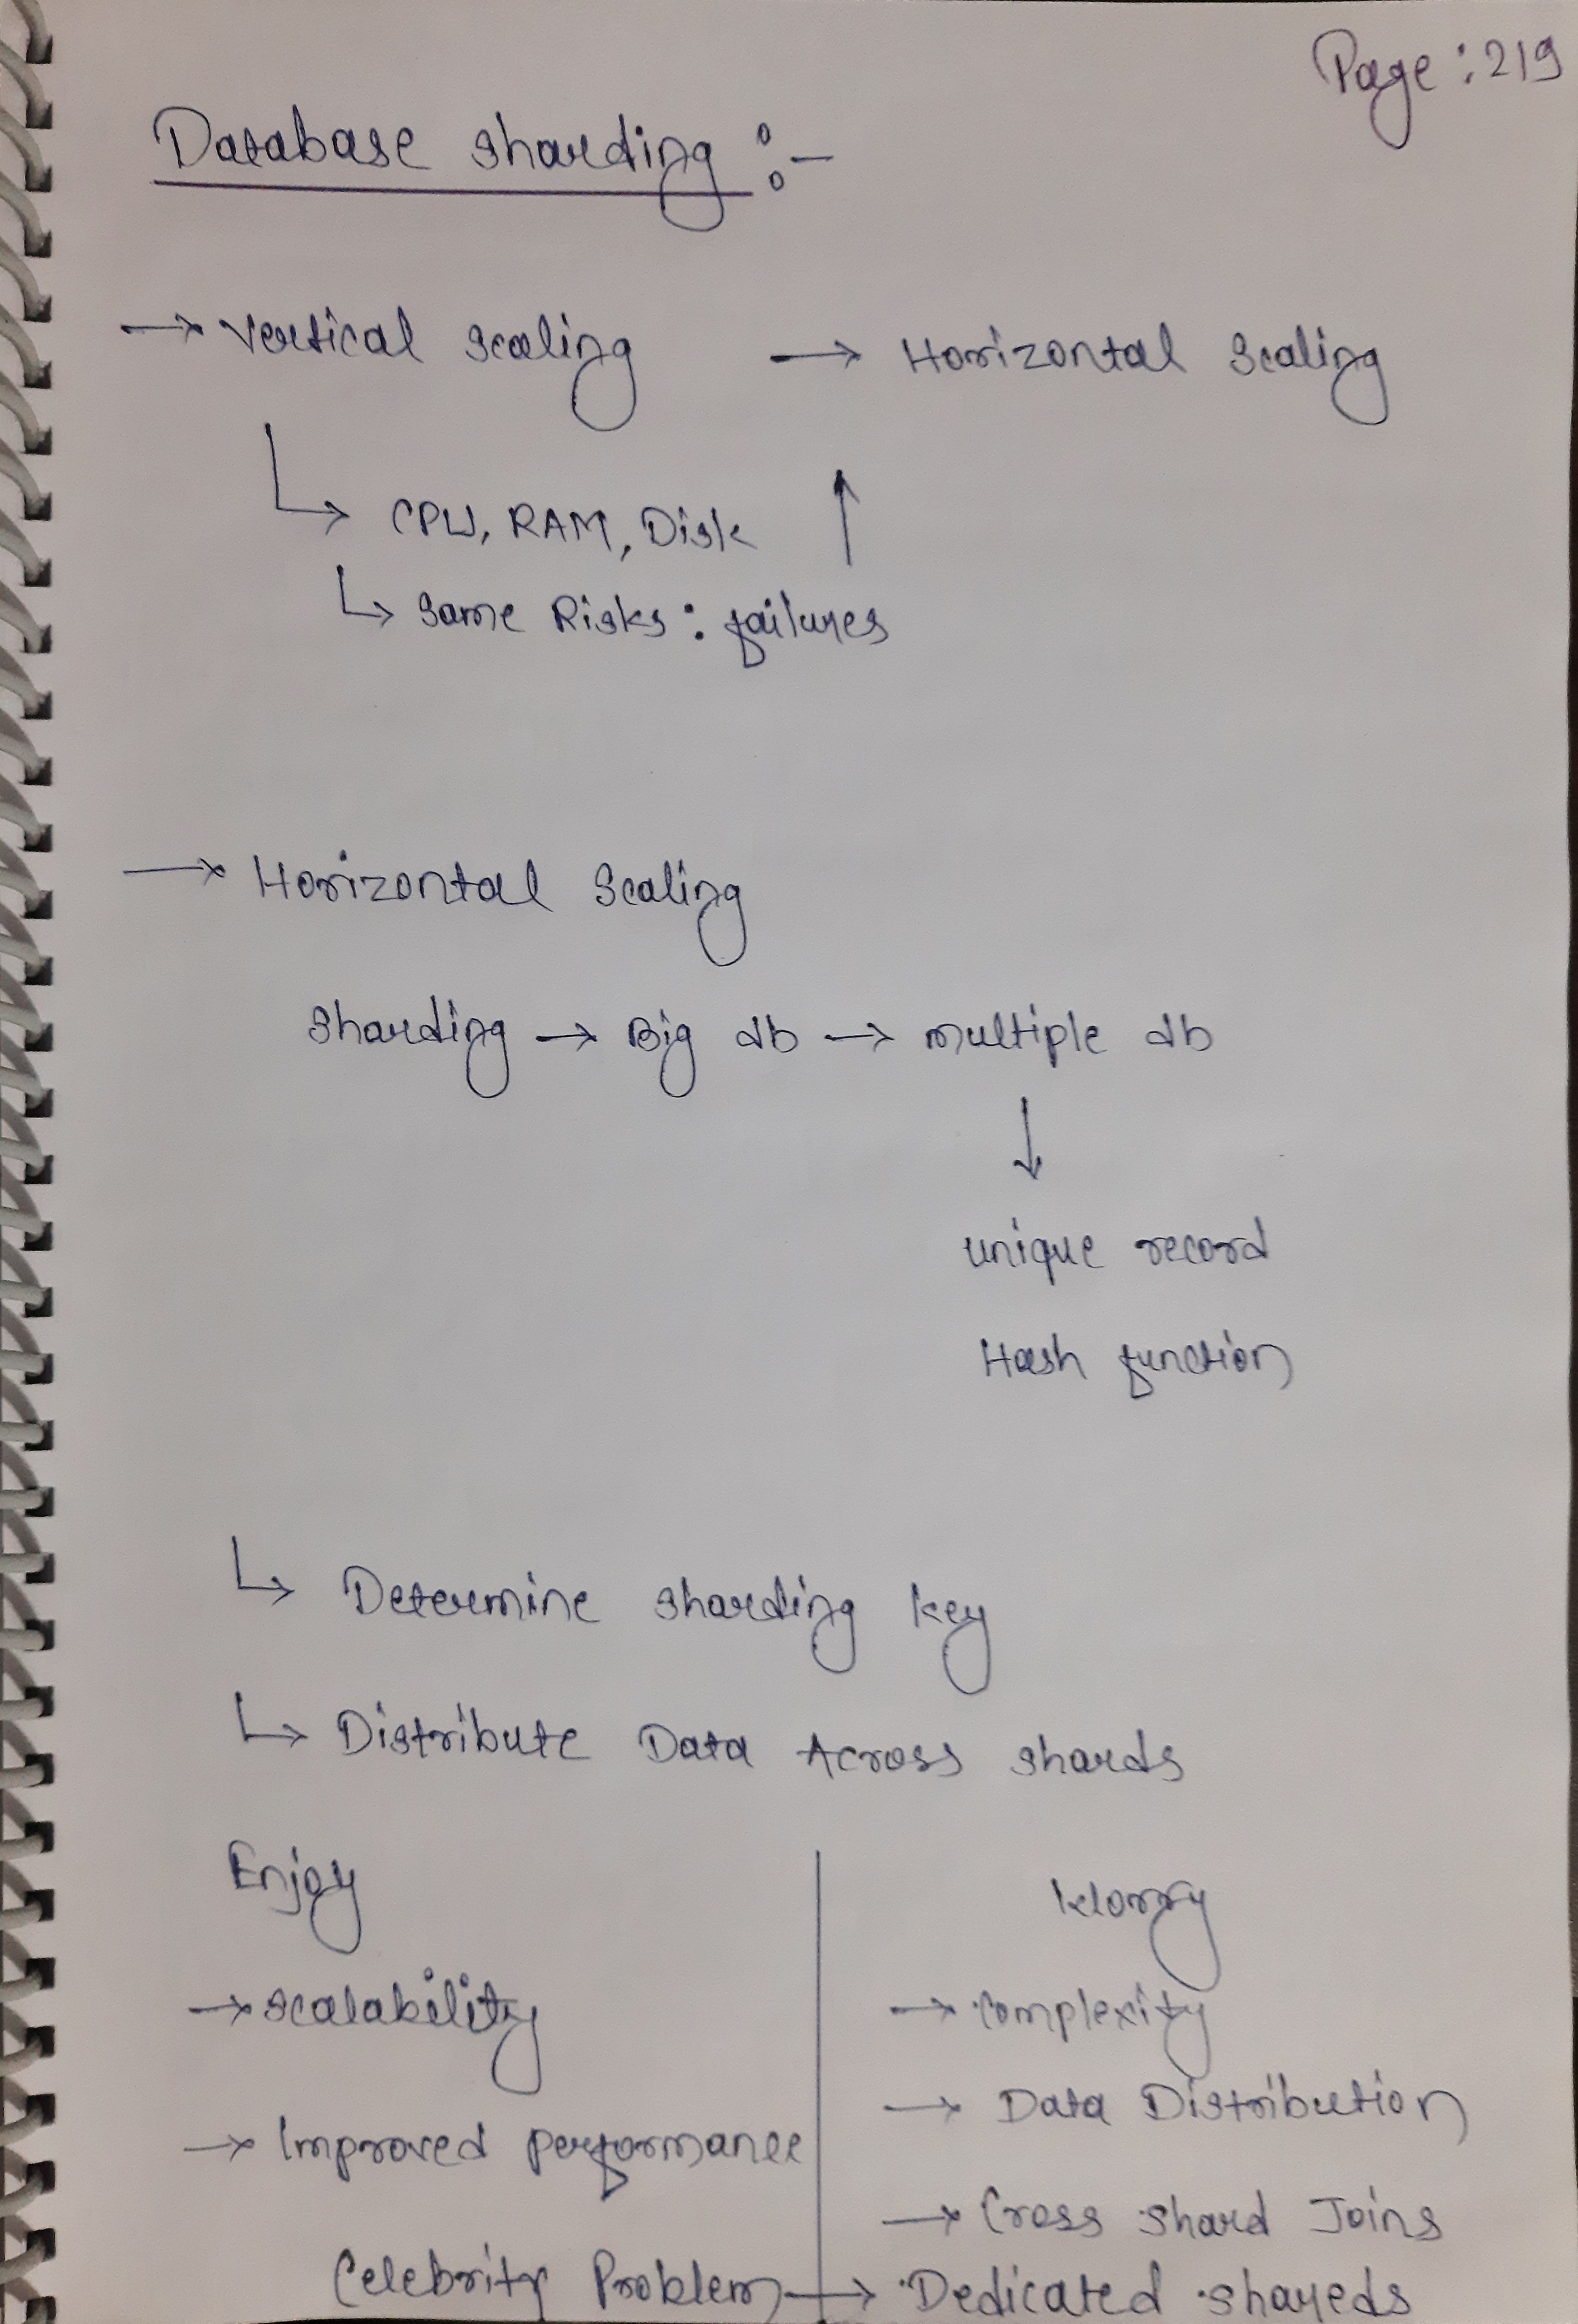 Page : 219
Database sharding :-
→ Vertical scaling → Horizontal Scaling
↳ CPU, RAM, Disk ↑
↳ Same Risks : failures
→ Horizontal Scaling
Sharding → Big db → multiple db
↓
unique record
Hash function
↳ Determine sharding key
↳ Distribute Data Across shards
Enjoy
Worry
→ scalability
→ Complexity
→ Data Distribution
→ Improved performance
→ Cross shard Joins
Celebrity Problem → Dedicated shareds